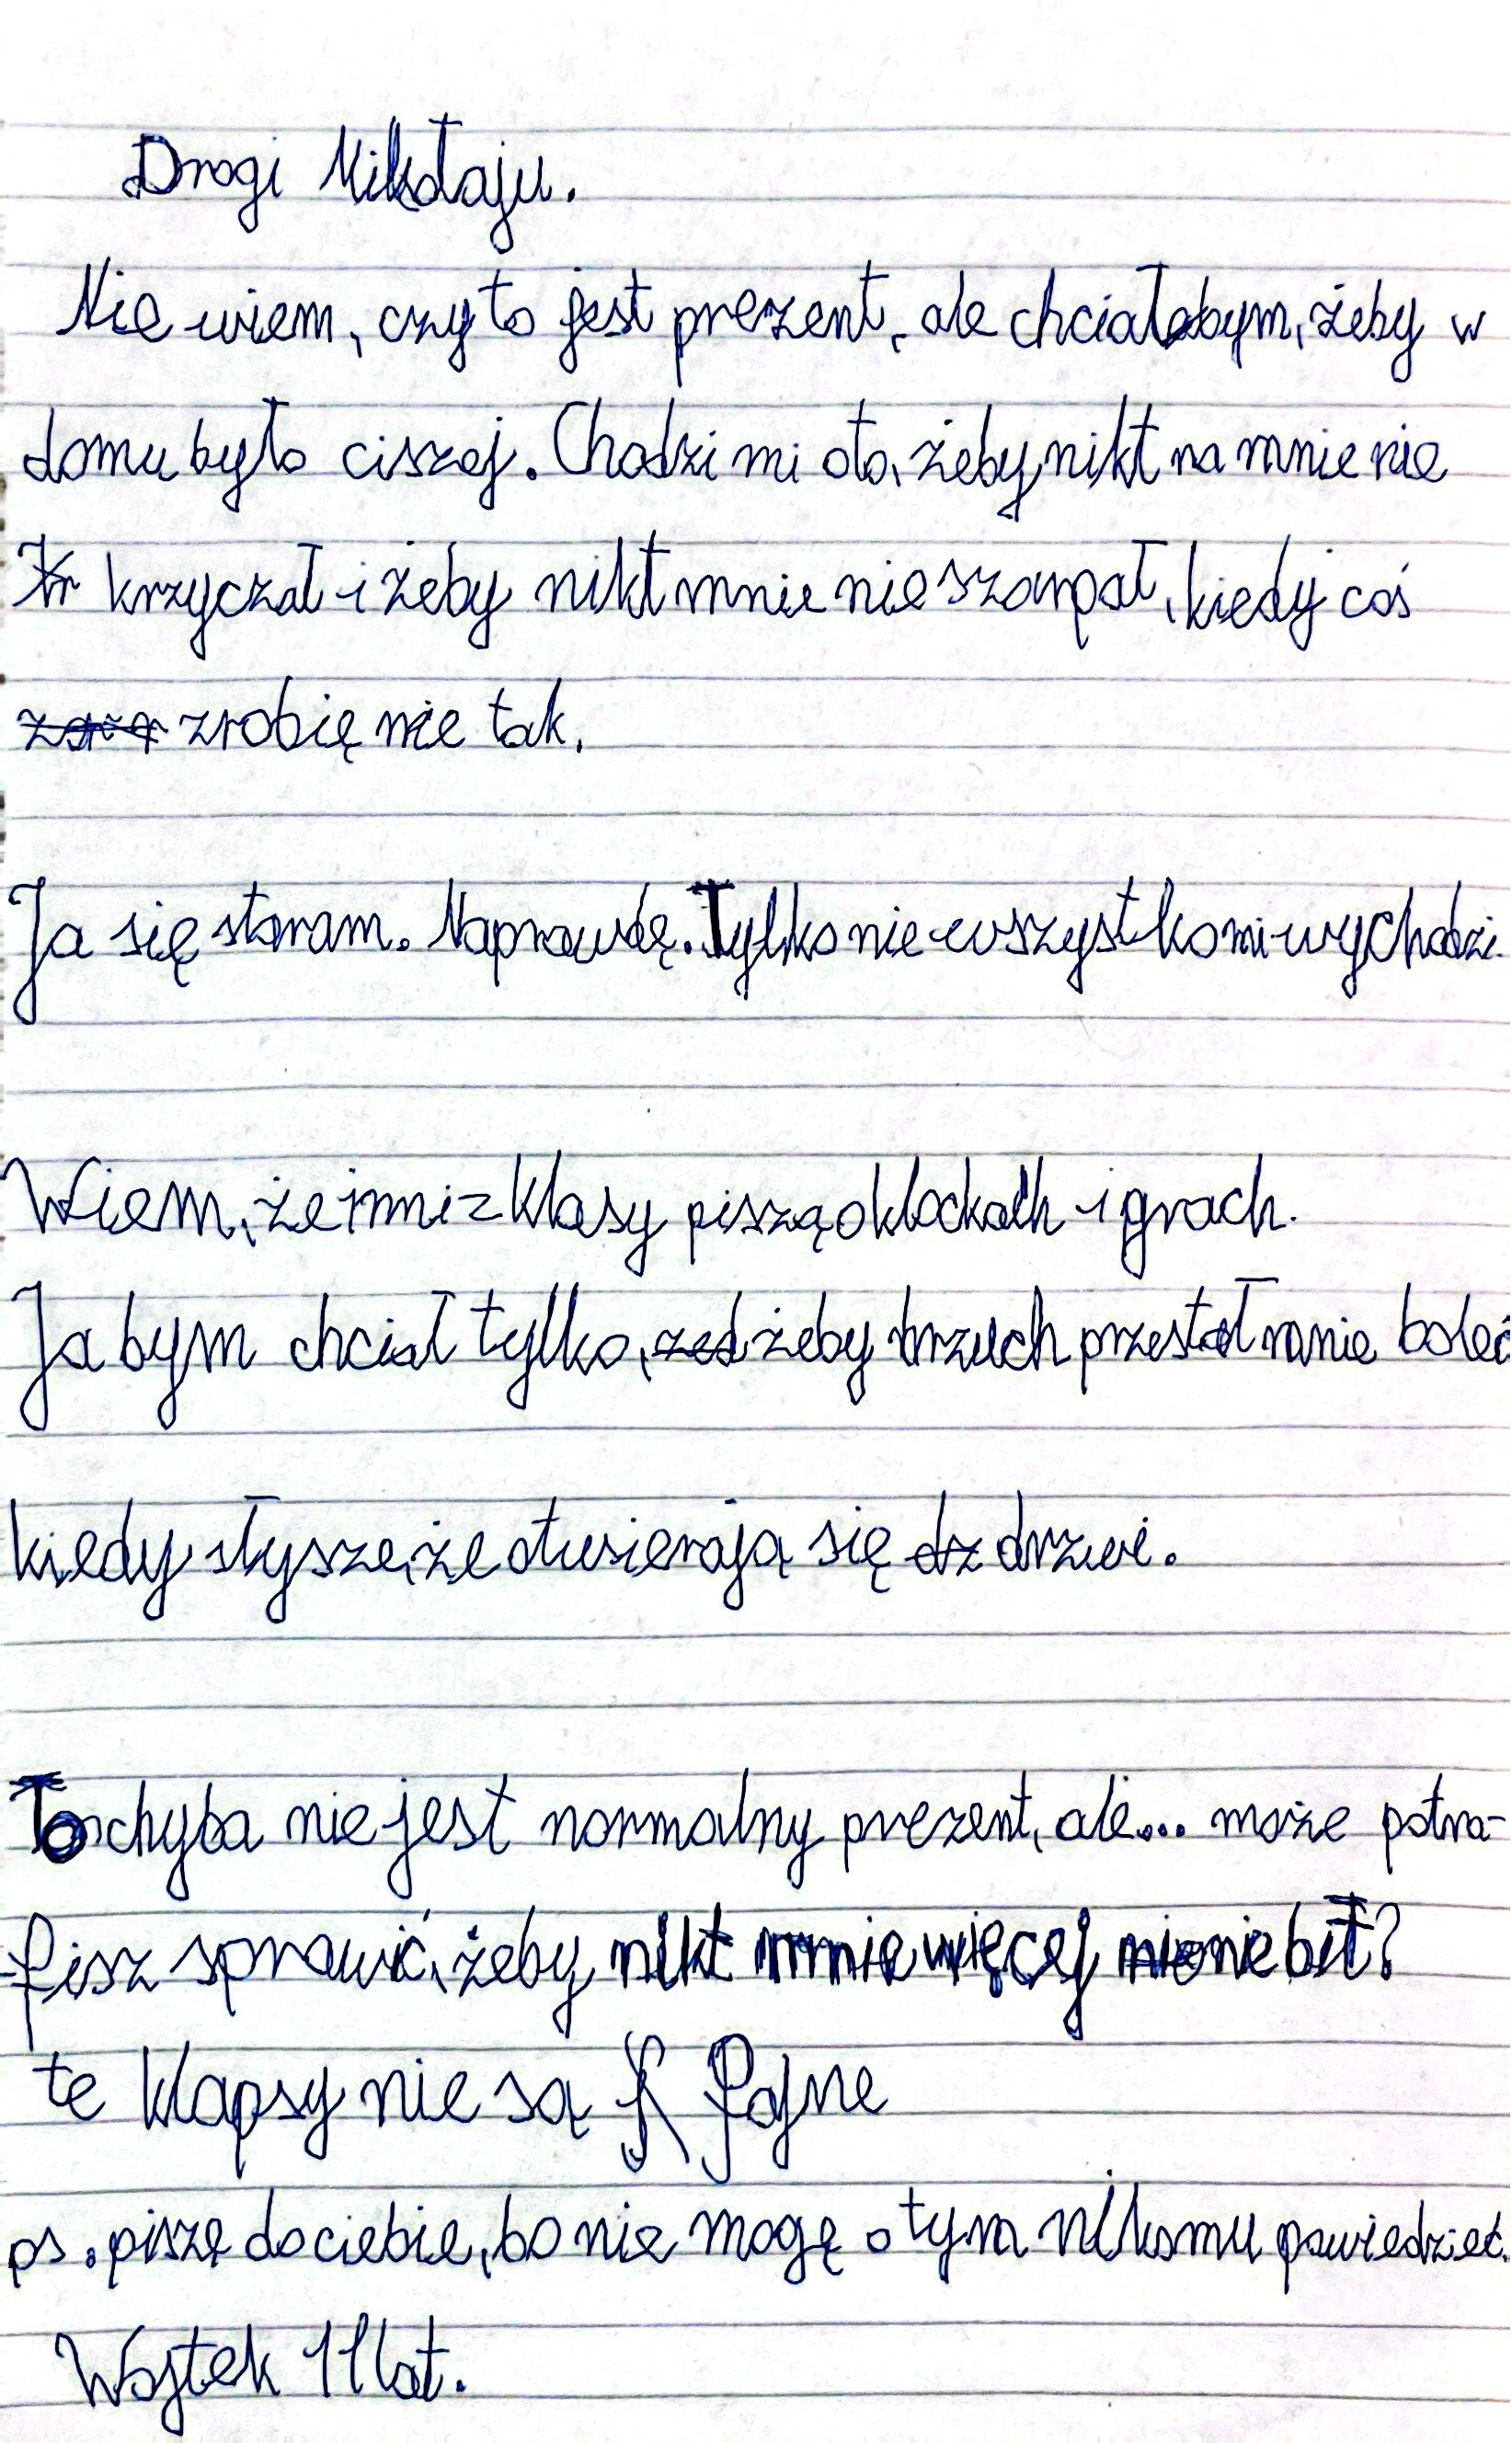 Drogi Mikołaju.
Nie wiem, czy to jest prezent, ale chciałabym, żeby w
domu było ciszej. Chodzi mi oto, żeby nikt na mnie nie
Kr krzyczał i żeby nikt mnie nie szarpał, kiedy coś
zrobię nie tak.
Ja się staram. Naprawdę. Tylko nie wszystko mi wychodzi.
Wiem, że inni z klasy piszą o klockach i grach.
Ja bym chciał tylko, żeby brzuch przestał mnie boleć
kiedy słyszę, że otwierają się dz drzwi.
To chyba nie jest normalny prezent, ale... może potra-
fisz sprawić, żeby nikt mnie więcej nie nie bił?
te klapsy nie są f fajne
ps. piszę do ciebie, bo nie mogę o tym nikomu powiedzieć.
Wojtek 11 lat.